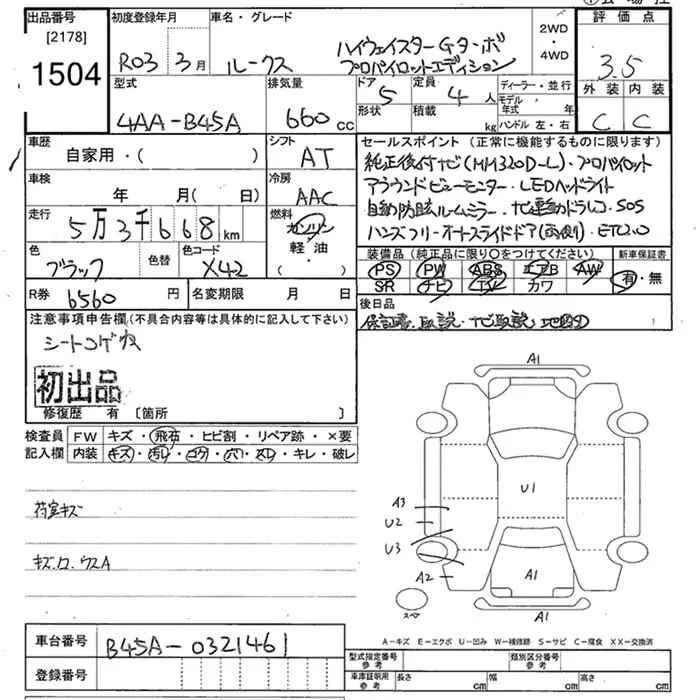 出品番号 初度登録年月 車名・グレード 評価点
[2178]
1504
R03 3月 ルークス ハイウェイスターGターボ
プロパイロットエディション
2WD
・
4WD
3.5
外装 内装
C C
型式 排気量 ドア 定員 ディーラー・並行
4AA-B45A 660 cc 5 4人 モデル年式 年
形状 積載 kg ハンドル 左・右
車歴 シフト セールスポイント(正常に機能するものに限ります)
自家用・( ) AT 純正後付ナビ(MM320D-L)・プロパイロット
車検 冷房 アラウンドビューモニター・LEDヘッドライト
年 月( 日) AAC 自動防眩ルームミラー・ナビ連動ドラレコ・SOS
走行 燃料 ハンズフリーオートスライドドア(両側)・ETC2.0
5万3千668km ガソリン
軽・油
・( )
色 色替 色コード 装備品(純正品に限り○をつけてください) 新車保証書
ブラック X42 PS PW ABS エアB AW 有・無
SR ナビ TV カワ
R券 6560円 名変期限 月 日 後日品
保証書、取説・ナビ取説・
注意事項申告欄(不具合内容等は具体的に記入して下さい)
シートコゲ穴
初出品
修復歴 有 〔箇所 〕
検査員 FW キズ・飛石・ヒビ割・リペア跡・×要
記入欄 内装 キズ・汚レ・コゲ・穴・スレ・キレ・破レ
荷室キズ
キズ.
A1
U1
A3
U2
U3
A2 A1
スペア A1
A-キズ E-エクボ U-凹み W-補修跡 S-サビ C-腐食 XX-交換済
車台番号 B45A-0321461
型式指定番号 参考 類別区分番号 参考
登録番号 車庫証明用 参考 長さ cm 幅 cm 高さ cm